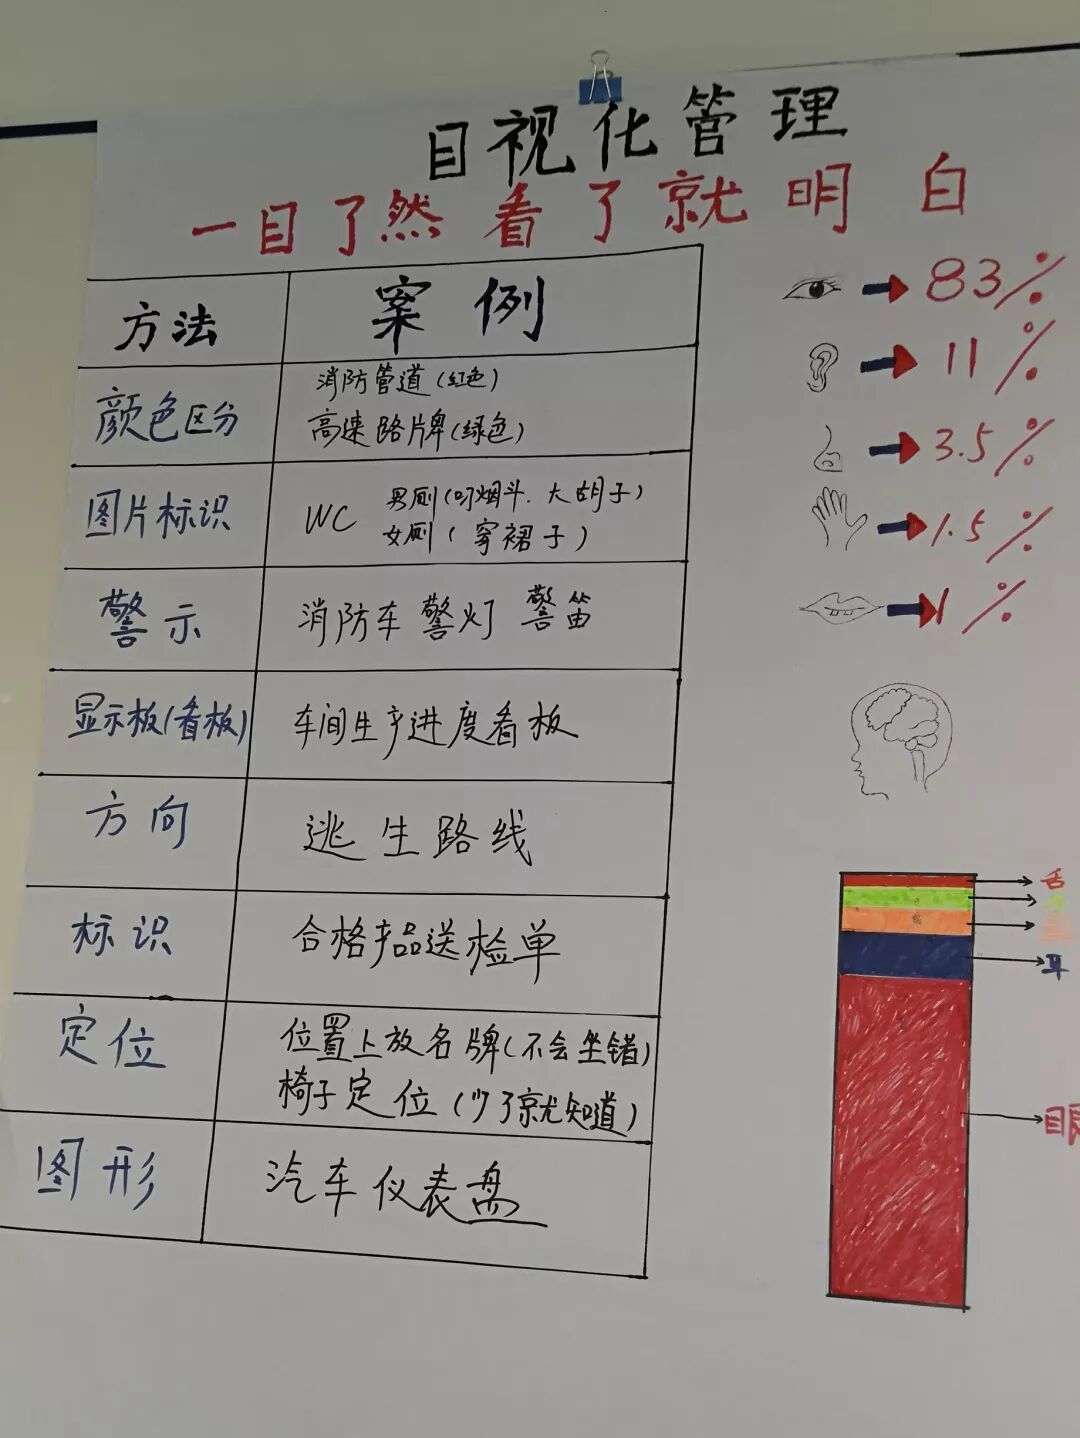 目视化管理
一目了然 看了就明白
方法 案例
颜色区分 消防管道(红色)
高速路牌(绿色)
图片标识 WC 男厕(叼烟斗.大胡子)
女厕(穿裙子)
警示 消防车警灯 警笛
显示板(看板) 车间生产进度看板
方向 逃生路线
标识 合格产品送检单
定位 位置上放名牌(不会坐错)
椅子定位(少了就知道)
图形 汽车仪表盘
83%
11%
3.5%
1.5%
1%
舌
耳
眼